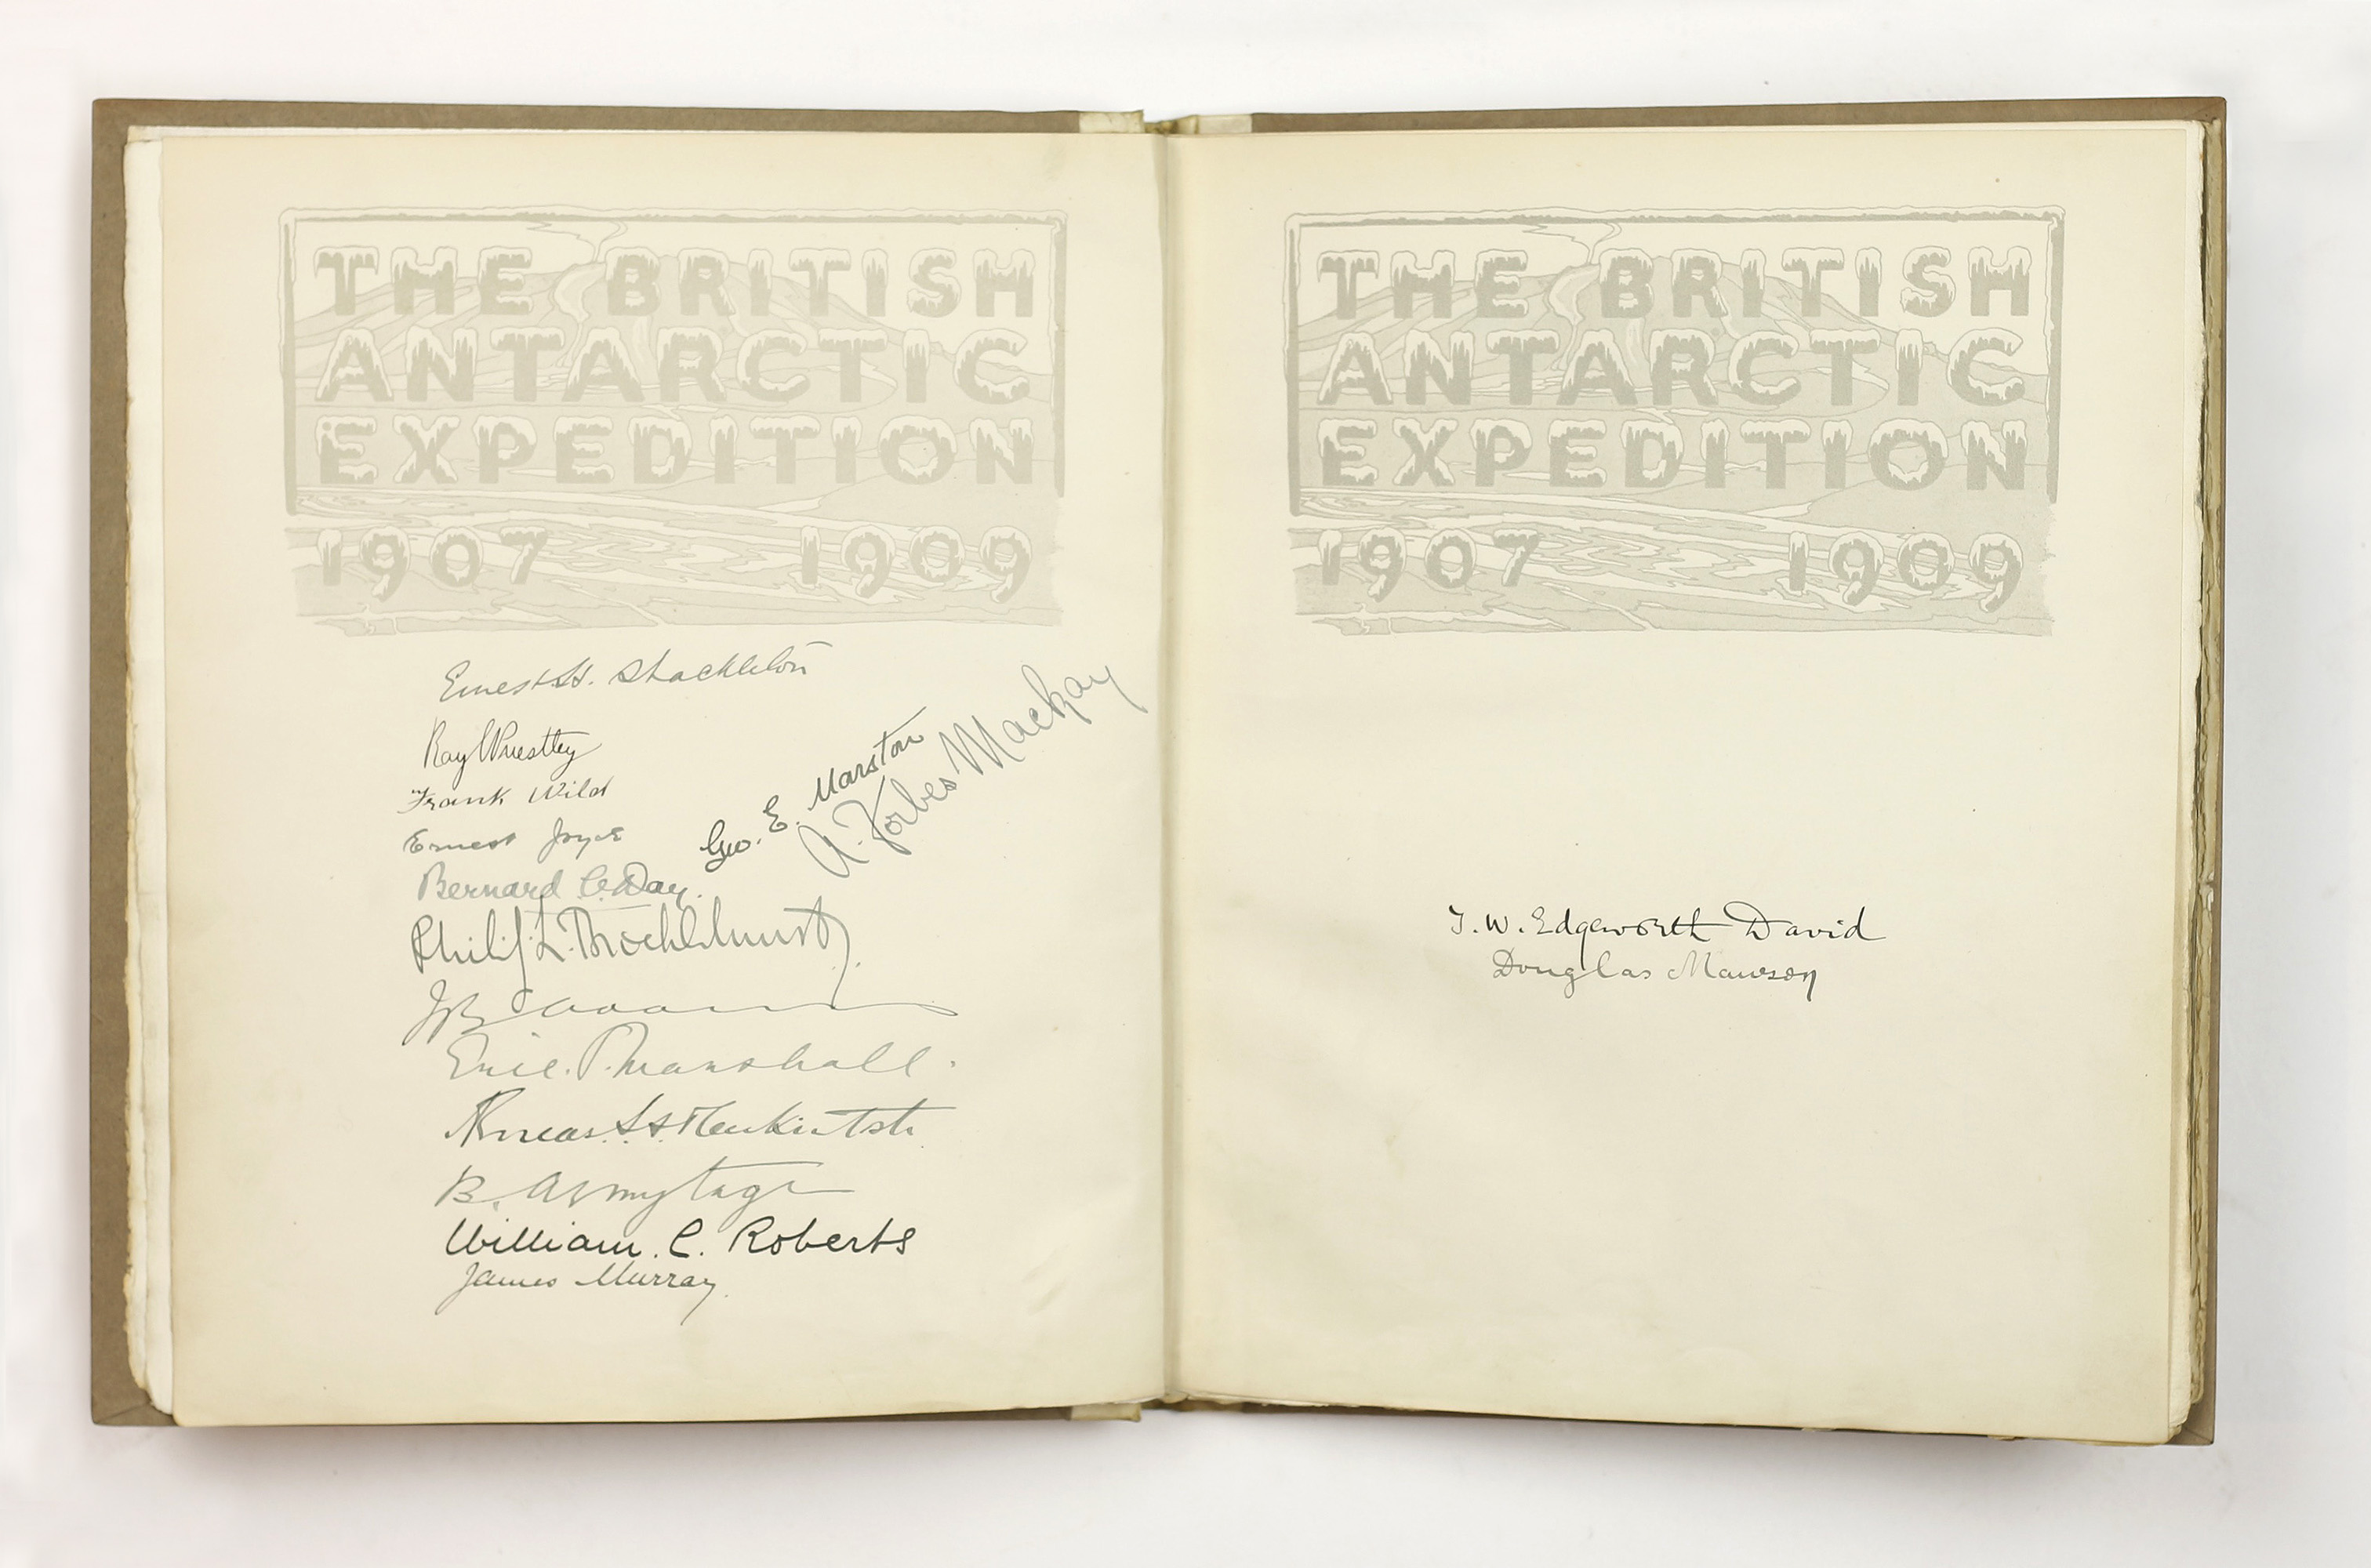 THE BRITISH
ANTARCTIC
EXPEDITION
1907 1909
Ernest H. Shackleton
Ray Priestley
Frank Wild
Ernest Joyce
Bernard C. Day.
Geo. E. Marston
A. Forbes Mackay
Philip L. Brocklehurst
JB Adams
Eric. P. Marshall.
Aeneas. L. A. Mackintosh.
B. Armytage
William. C. Roberts
James Murray.
THE BRITISH
ANTARCTIC
EXPEDITION
1907 1909
T. W. Edgeworth David
Douglas Mawson